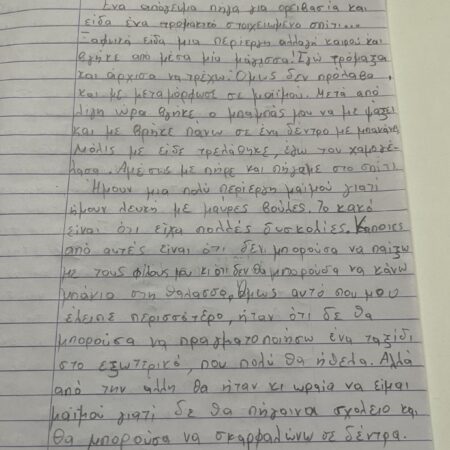 Ένα απόγευμα πήγα για ορειβασία και
είδα ένα τρομακτικό στοιχειωμένο σπίτι...
Ξαφνικά είδα μια περίεργη αλλαγή καιρού και
βγήκε από μέσα μία μάγισσα. Εγώ τρόμαξα
και άρχισα να τρέχω. Όμως δεν πρόλαβα,
και με μεταμόρφωσε σε μαϊμού. Μετά από
λίγη ώρα βγήκε ο μπαμπάς μου να με ψάξει
και με βρήκε πάνω σε ένα δέντρο με μπανάνες
Μόλις με είδε τρελάθηκε, εγώ του χαμογέ-
λασα. Αμέσως με πήρε και πήγαμε στο σπίτι.
Ήμουν μια πολύ περίεργη μαϊμού γιατί
ήμουν λευκή με μαύρες βούλες. Το κακό
είναι ότι είχα πολλές δυσκολίες. Κάποιες
από αυτές είναι ότι δεν μπορούσα να παίξω
με τους φίλους μου κι ότι δεν θα μπορούσα να κάνω
μπάνιο στη θάλασσα. Όμως αυτό που μου
έλειπε περισσότερο, ήταν ότι δε θα
μπορούσα να πραγματοποιήσω ένα ταξίδι
στο εξωτερικό, που πολύ θα ήθελα. Αλλά
από την άλλη θα ήταν κι ωραία να είμαι
μαϊμού γιατί δε θα πήγαινα σχολείο και
θα μπορούσα να σκαρφαλώνω σε δέντρα.